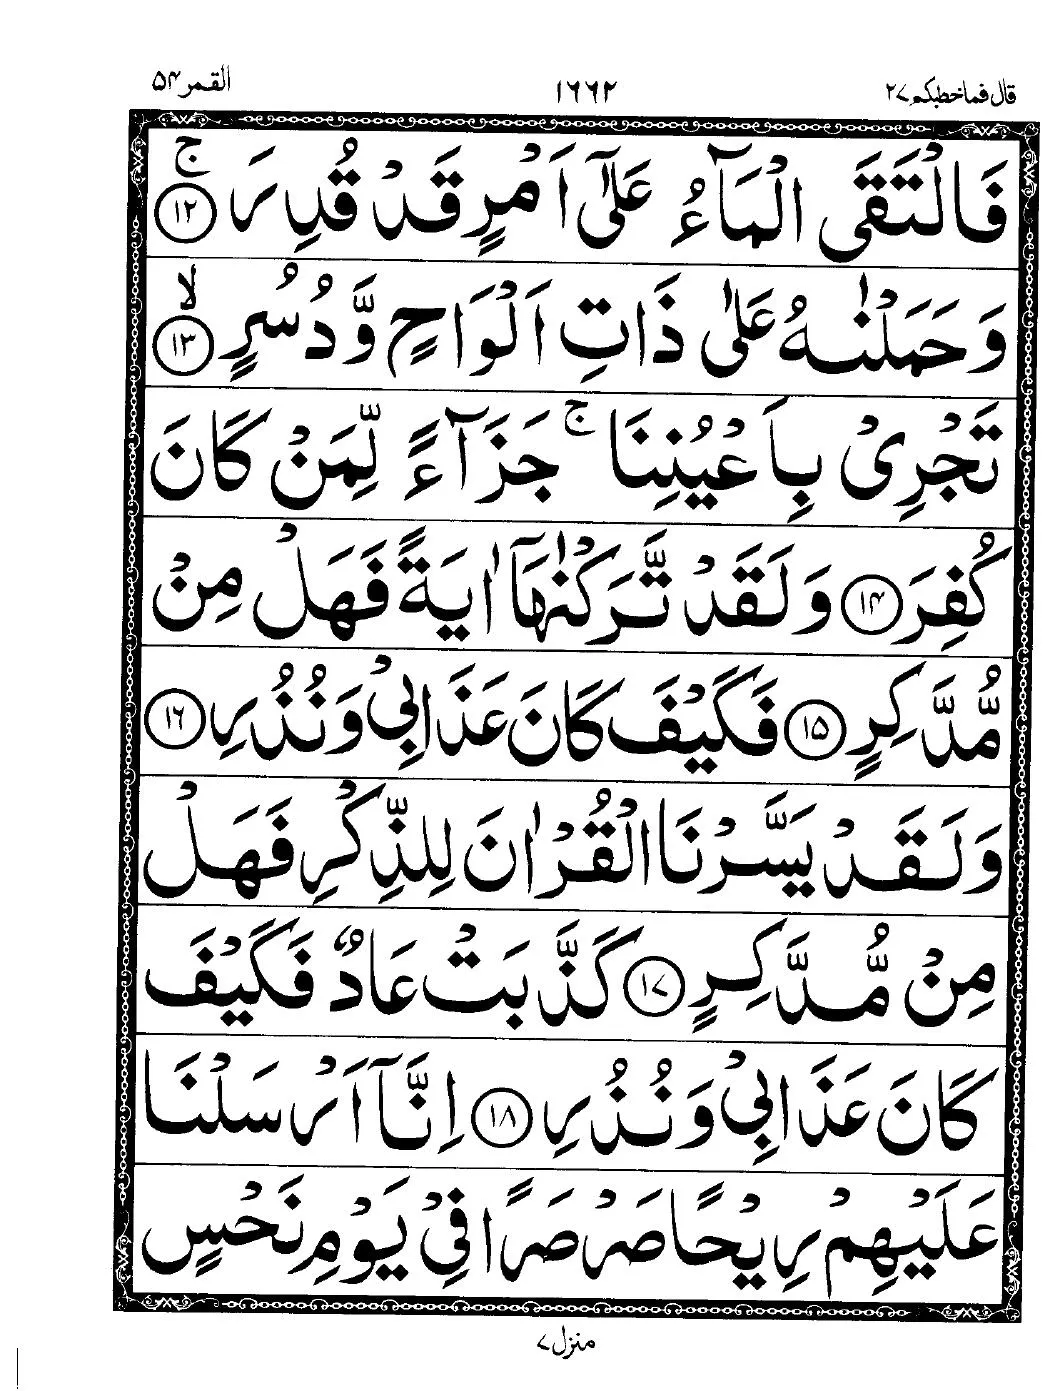 قال فما خطبكم ۲۷ ۱۶۶۲ القمر ۵۴
فَالْتَقَى الْمَآءُ عَلٰۤى اَمْرٍ قَدْ قُدِرَ ۚ ﴿۱۲﴾
وَحَمَلْنٰهُ عَلٰى ذَاتِ اَلْوَاحٍ وَّدُسُرٍ ۙ ﴿۱۳﴾
تَجْرِیْ بِاَعْیُنِنَا ۚ جَزَآءً لِّمَنْ كَانَ
كُفِرَ ﴿۱۴﴾ وَلَقَدْ تَّرَكْنٰهَاۤ اٰیَةً فَهَلْ مِنْ
مُّدَّكِرٍ ﴿۱۵﴾ فَكَیْفَ كَانَ عَذَابِیْ وَنُذُرِ ﴿۱۶﴾
وَلَقَدْ یَسَّرْنَا الْقُرْاٰنَ لِلذِّكْرِ فَهَلْ
مِنْ مُّدَّكِرٍ ﴿۱۷﴾ كَذَّبَتْ عَادٌ فَكَیْفَ
كَانَ عَذَابِیْ وَنُذُرِ ﴿۱۸﴾ اِنَّاۤ اَرْسَلْنَا
عَلَیْهِمْ رِیْحًا صَرْصَرًا فِیْ یَوْمِ نَحْسٍ
منزل ۷